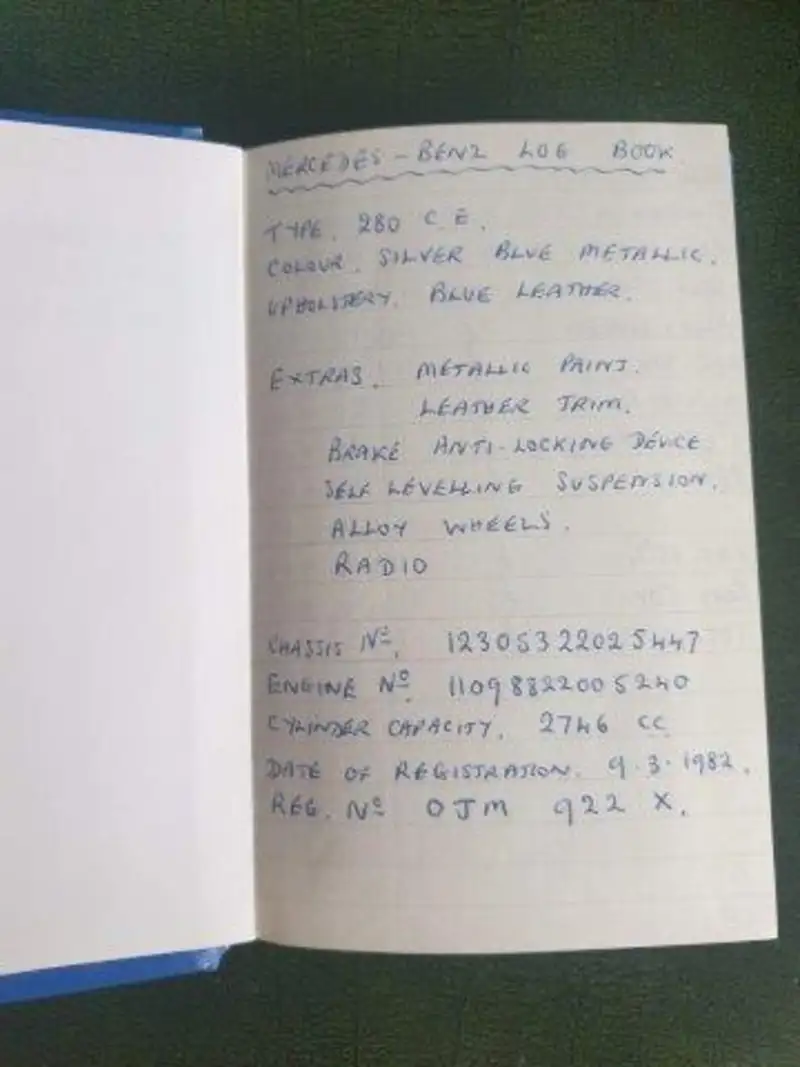 MERCEDES - BENZ LOG BOOK
TYPE. 280 C E.
COLOUR. SILVER BLUE METALLIC.
UPHOLSTERY. BLUE LEATHER.
EXTRAS. METALLIC PAINT.
LEATHER TRIM.
BRAKE ANTI-LOCKING DEVICE
SELF LEVELLING SUSPENSION.
ALLOY WHEELS.
RADIO
CHASSIS Nº. 12305322025447
ENGINE Nº. 11098822005240
CYLINDER CAPACITY. 2746 CC
DATE OF REGISTRATION. 9.3.1982.
REG. Nº OJM 922 X.